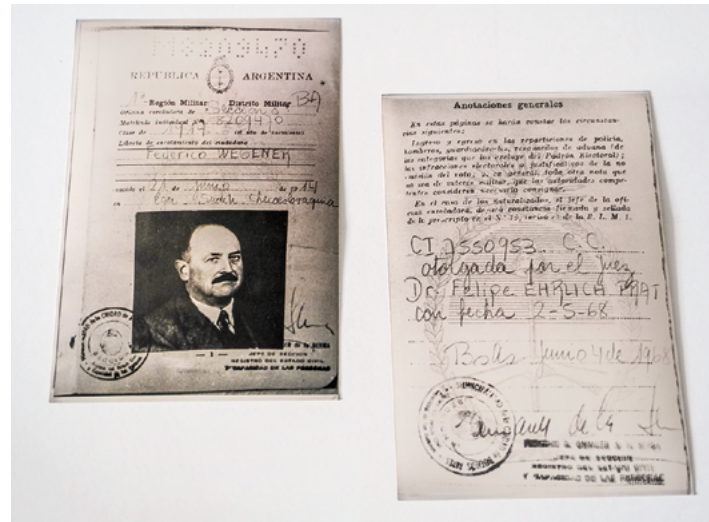 M8209470
REPUBLICA ARGENTINA
1ª Región Militar Distrito Militar BA
Oficina enroladora de Sección
Matrícula individual Nº 8209470
Clase de 1914 (el año de nacimiento)
Libreta de enrolamiento del ciudadano
Federico WEGENER
nacido el 21 de Junio de 1914
en
— 1 —
JEFE DE SECCION
REGISTRO DEL ESTADO CIVIL
Y CAPACIDAD DE LAS PERSONAS
Anotaciones generales
En estas páginas se harán constar las circunstan-
cias siguientes:
Ingreso y egreso en las reparticiones de policía,
bomberos, guardiacárceles, resguardos de aduana (de
las categorías que los excluye del Padrón Electoral);
las infracciones electorales y justificativos de la no
emisión del voto, y en general, toda otra nota que
no sea de carácter militar, que las autoridades compe-
tentes consideren necesario consignar.
En el caso de los naturalizados, el jefe de la ofi-
cina enroladora, dejará constancia firmada y sellada
de lo prescripto en el Nº 19, inciso c) de la R. L. M. 1.
CI 7550953 C.C.
otorgada por el Juez
Dr. Felipe EHRLICH PRAT
con fecha 2-5-68
BsAs Junio 4 de 1968
JEFE DE SECCION
REGISTRO DEL ESTADO CIVIL
Y CAPACIDAD DE LAS PERSONAS